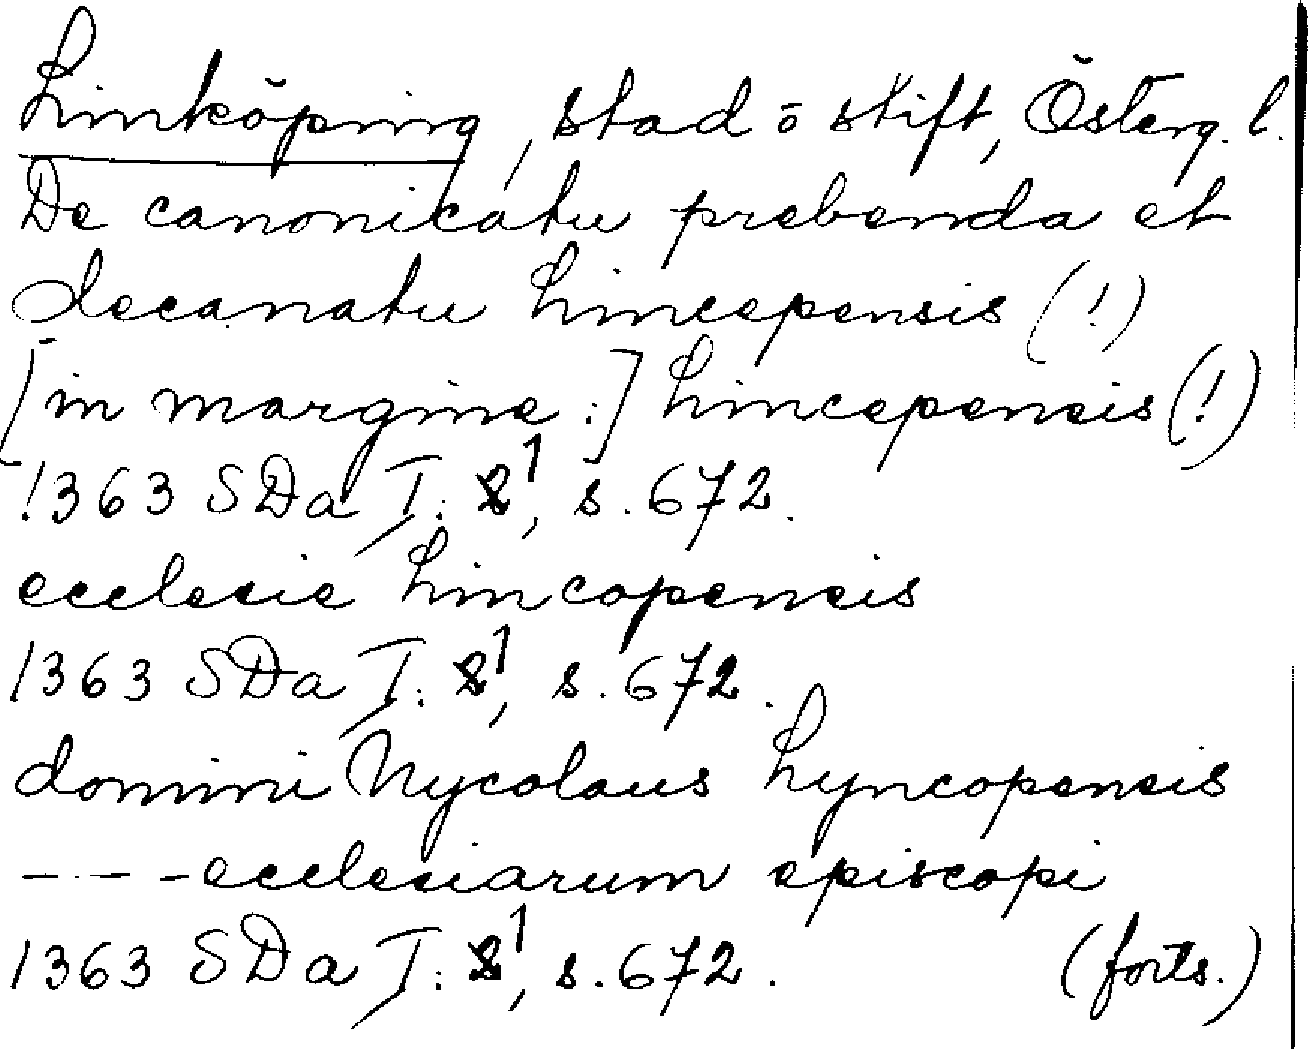 Linköping, stad o stift, Österg. l.
De canonicatu prebenda et
decanatu Lincepensis (!)
[in margine:] Lincepensis (!)
1363 SDa I: 1, s. 672.
ecclesie Lincopensis
1363 SDa I: 1, s. 672.
domini Nycolaus Lyncopensis
---- ecclesiarum episcopi
1363 SDa I: 1, s. 672. (forts.)